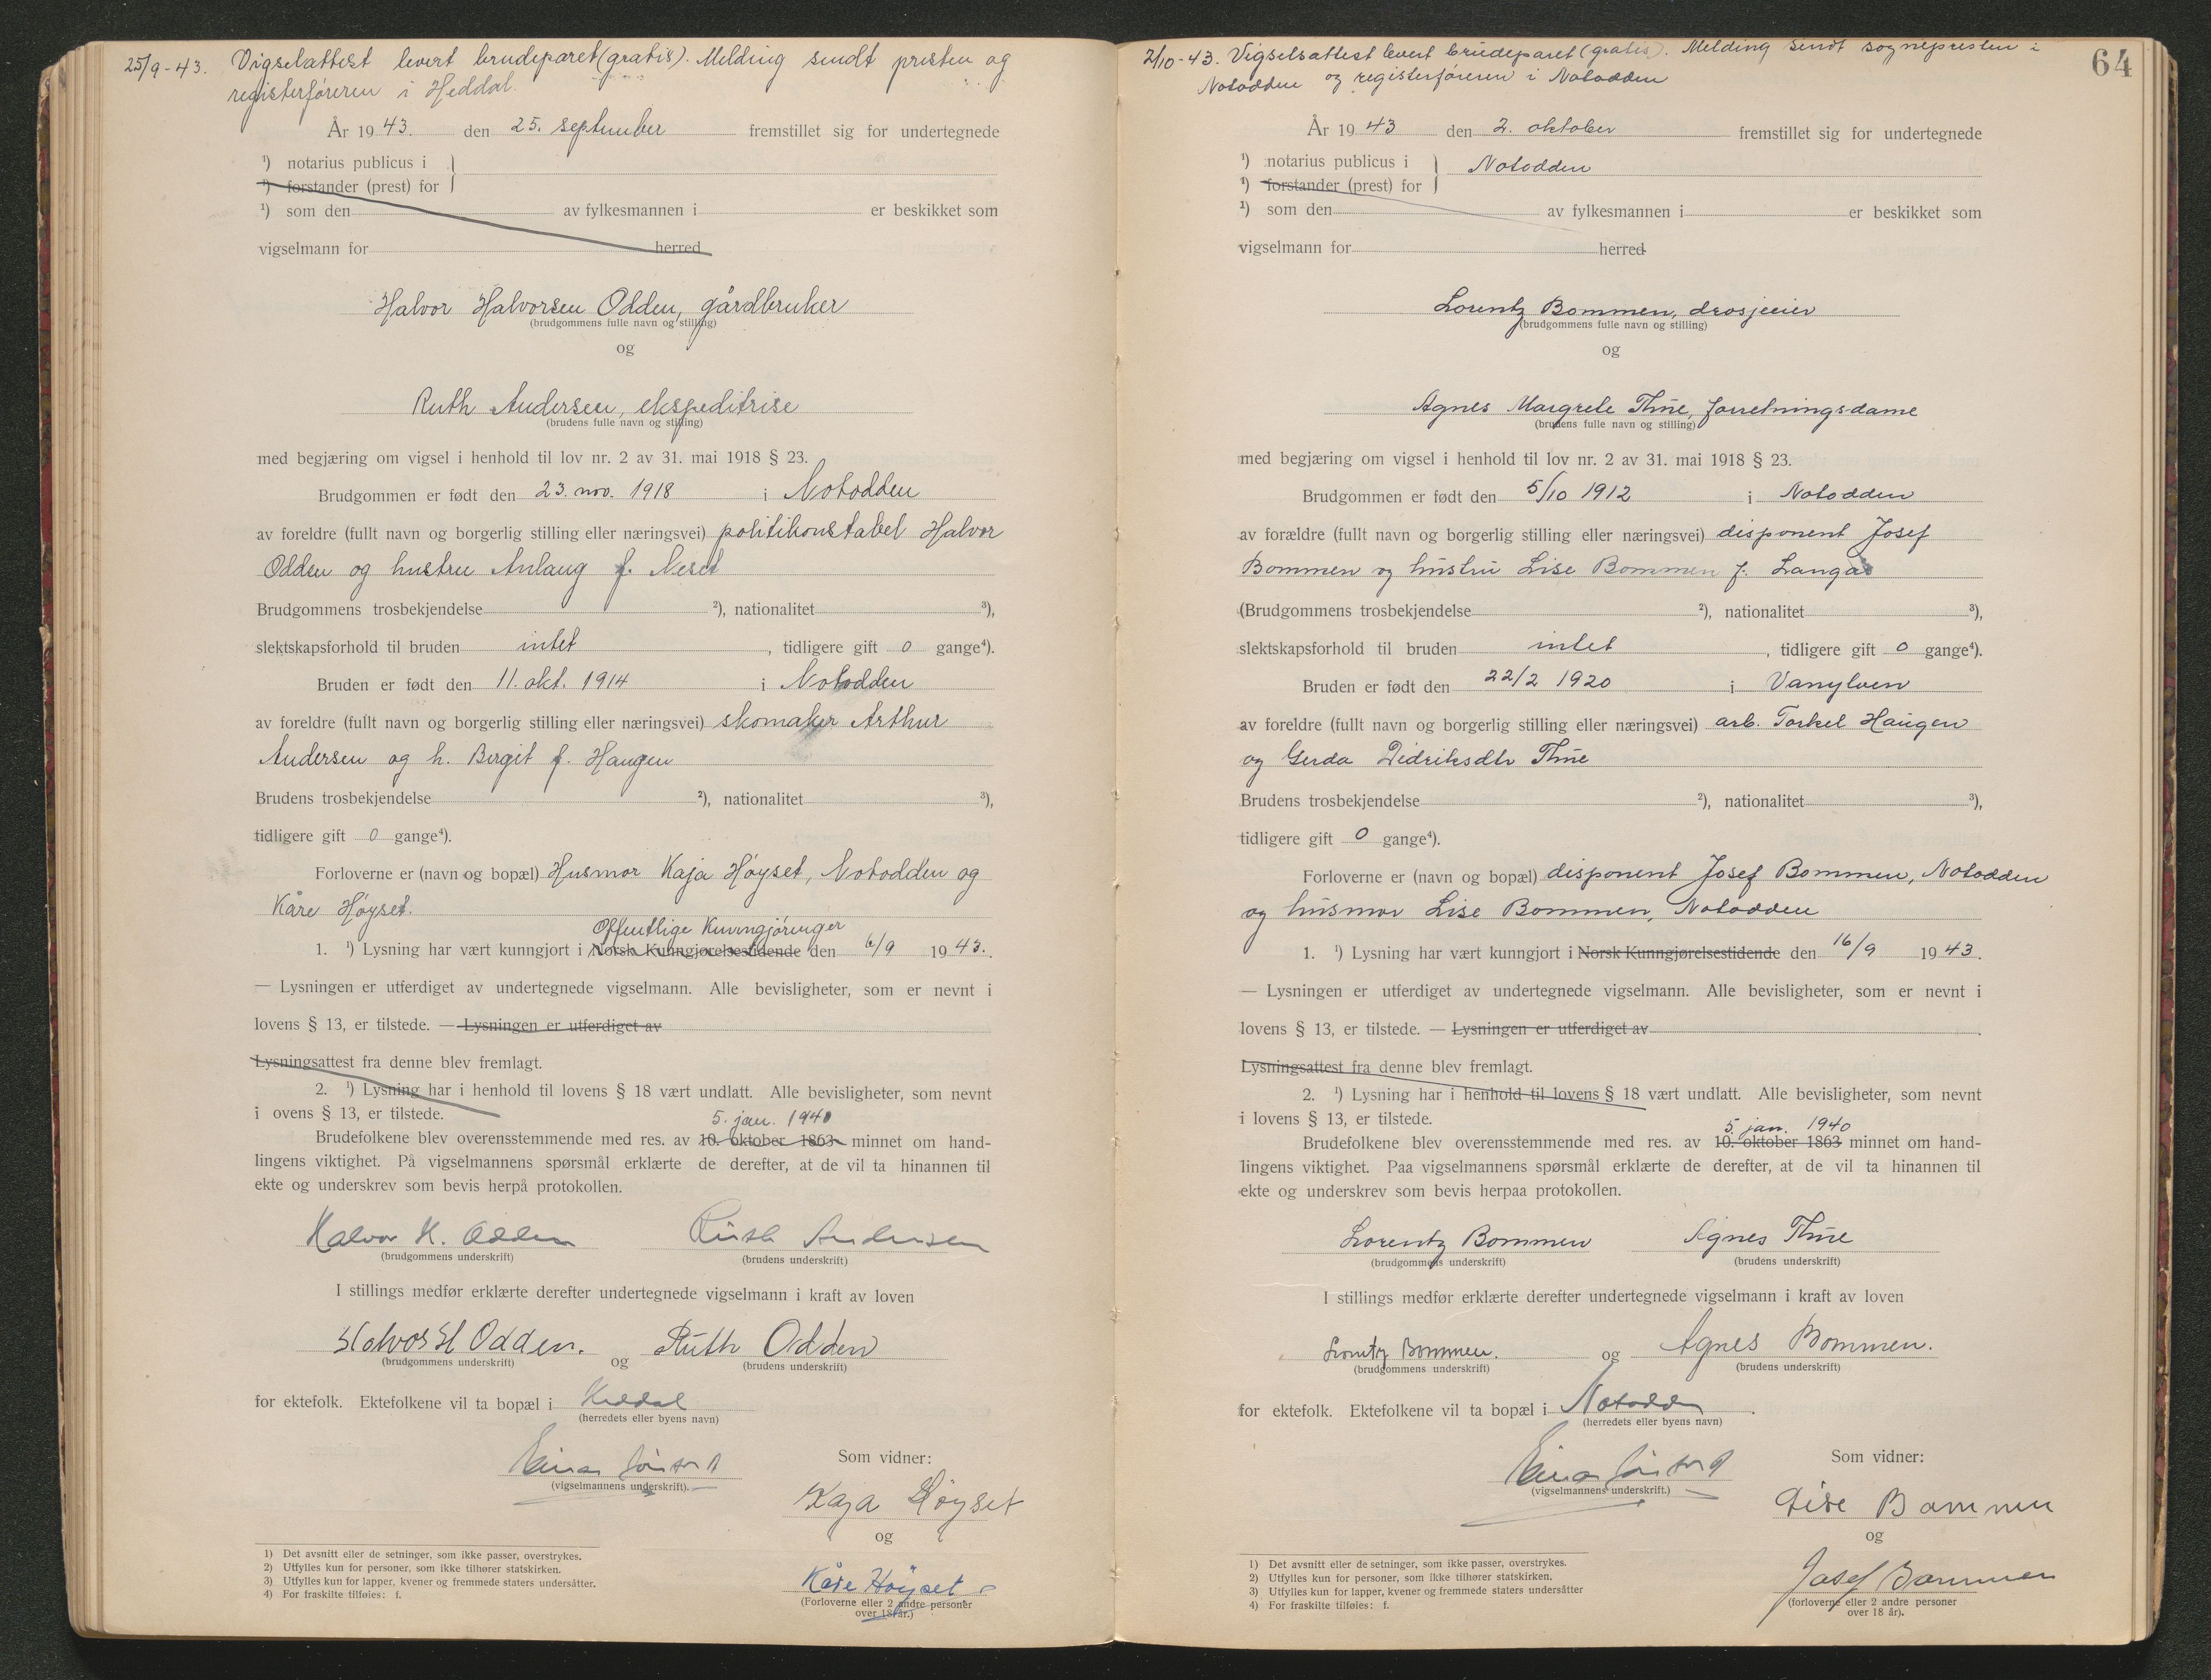 25/9-43. Vigselattest levert brudeparet (gratis). Melding sendt presten og
registerføreren i Heddal.
År 1943. den 25. september fremstillet sig for undertegnede
¹) notarius publicus i }
¹) forstander (prest) for
¹) som den av fylkesmannen i er beskikket som
vigselmann for herred
Halvor Halvorsen Odden, gårdbruker
(brudgommens fulle navn og stilling)
og
Ruth Andersen, ekspeditrise
(brudens fulle navn og stilling)
med begjæring om vigsel i henhold til lov nr. 2 av 31. mai 1918 § 23.
Brudgommen er født den 23. nov. 1918 i Notodden
av foreldre (fullt navn og borgerlig stilling eller næringsvei) politikonstabel Halvor
Odden og hustru Anlaug f. Neset
Brudgommens trosbekjendelse ²), nationalitet ³),
slektskapsforhold til bruden intet , tidligere gift 0 gange⁴).
Bruden er født den 11. okt. 1914 i Notodden
av foreldre (fullt navn og borgerlig stilling eller næringsvei) skomaker Arthur
Andersen og h. Birgit f. Haugen
Brudens trosbekjendelse ²), nationalitet ³),
tidligere gift 0 gange⁴).
Forloverne er (navn og bopæl) Husmor Kaja Høyset, Notodden og
Kåre Høyset.
Offentlige Kunngjøringer
1. ¹) Lysning har vært kunngjort i Norsk Kunngjørelsestidende den 6/9 1943.
— Lysningen er utferdiget av undertegnede vigselmann. Alle bevisligheter, som er nevnt i
lovens § 13, er tilstede. — Lysningen er utferdiget av
Lysningsattest fra denne blev fremlagt.
2. ¹) Lysning har i henhold til lovens § 18 vært undlatt. Alle bevisligheter, som nevnt
i ovens § 13, er tilstede.
5. jan. 1940
Brudefolkene blev overensstemmende med res. av 10. oktober 1863 minnet om hand-
lingens viktighet. På vigselmannens spørsmål erklærte de derefter, at de vil ta hinannen til
ekte og underskrev som bevis herpå protokollen.
Halvor H. Odden Ruth Andersen
(brudgommens underskrift) (brudens underskrift)
I stillings medfør erklærte derefter undertegnede vigselmann i kraft av loven
Halvor H Odden. og Ruth Odden
(brudgommens underskrift) (brudens underskrift)
for ektefolk. Ektefolkene vil ta bopæl i Heddal
(herredets eller byens navn)
Einar
(vigselmannens underskrift).
Som vidner:
Kaja Høyset
og
Kåre Høyset
(Forloverne eller 2 andre personer
over 18 år.)
1) Det avsnitt eller de setninger, som ikke passer, overstrykes.
2) Utfylles kun for personer, som ikke tilhører statskirken.
3) Utfylles kun for lapper, kvener og fremmede staters undersåtter.
4) For fraskilte tilføies: f.
64
2/10-43. Vigselsattest levert brudeparet (gratis). Melding sendt sognepresten i
Notodden og registerføreren i Notodden
År 1943 den 2. oktober fremstillet sig for undertegnede
¹) notarius publicus i } Notodden
¹) forstander (prest) for
¹) som den av fylkesmannen i er beskikket som
vigselmann for herred
Lorentz Bommen, drosjeeier
(brudgommens fulle navn og stilling)
og
Agnes Margrete Thue, forretningsdame
(brudens fulle navn og stilling)
med begjæring om vigsel i henhold til lov nr. 2 av 31. mai 1918 § 23.
Brudgommen er født den 5/10 1912 i Notodden
av forældre (fullt navn og borgerlig stilling eller næringsvei) disponent Josef
Bommen og hustru Lise Bommen f. Langås
(Brudgommens trosbekjendelse ²), nationalitet ³),
slektskapsforhold til bruden intet , tidligere gift 0 gange⁴).
Bruden er født den 22/2 1920 i Vanylven
av foreldre (fullt navn og borgerlig stilling eller næringsvei) arb. Torkel Haugen
og Gerda Didriksdtr Thue
Brudens trosbekjendelse ²), nationalitet ³),
tidligere gift 0 gange⁴).
Forloverne er (navn og bopæl) disponent Josef Bommen, Notodden
og husmor Lise Bommen, Notodden
1. ¹) Lysning har vært kunngjort i Norsk Kunngjørelsestidende den 16/9 1943.
— Lysningen er utferdiget av undertegnede vigselmann. Alle bevisligheter, som er nevnt i
lovens § 13, er tilstede. — Lysningen er utferdiget av .
Lysningsattest fra denne blev fremlagt.
2. ¹) Lysning har i henhold til lovens § 18 vært undlatt. Alle bevisligheter, som nevnt
i lovens § 13, er tilstede.
5. jan. 1940
Brudefolkene blev overensstemmende med res. av 10. oktober 1863 minnet om hand-
lingens viktighet. Paa vigselmannens spørsmål erklærte de derefter, at de vil ta hinannen til
ekte og underskrev som bevis herpaa protokollen.
Lorentz Bommen Agnes Thue
(brudgommens underskrift) (brudens underskrift)
I stillings medfør erklærte derefter undertegnede vigselmann i kraft av loven
Lorentz Bommen. og Agnes Bommen.
(brudgommens underskrift) (brudens underskrift)
for ektefolk. Ektefolkene vil ta bopæl i Notodden.
(herredets eller byens navn)
Einar
(vigselmannens underskrift.)
Som vidner:
Lise Bommen
og
Josef Bommen
(forloverne eller 2 andre personer
over 18 år).
1) Det avsnitt eller de setninger, som ikke passer, overstrykes.
2) Utfylles kun for personer, som ikke tilhører statskirken.
3) Utfylles kun for lapper, kvener og fremmede staters undersåtter
4) For fraskilte tilføies: f.